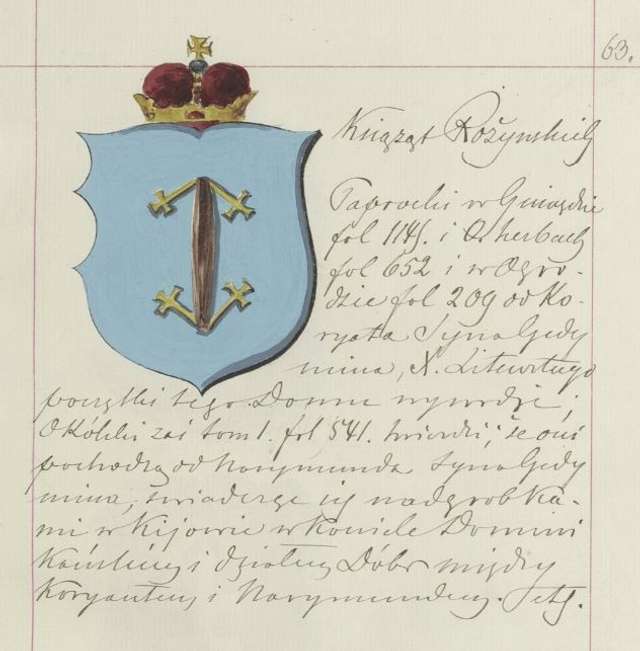 63.
Książąt Rożynskich
Paprocki w Gniaździe
fol 1145. i O herbach
fol 652 i w Ogro-
dzie fol 209 od Ko-
ryata Syna Gedy
mina, X. Litewskiego
początki tego Domu wywodzi;
Okólski zaś tom 1. fol 541. twierdzi, że oni
pochodzą od Narymunda Syna Gedy
mina, świadcząc się nadgrobka-
mi w Kijowie w kościele Domini
kańskiey i działem Dóbr między
Koryantem i Narymundem.